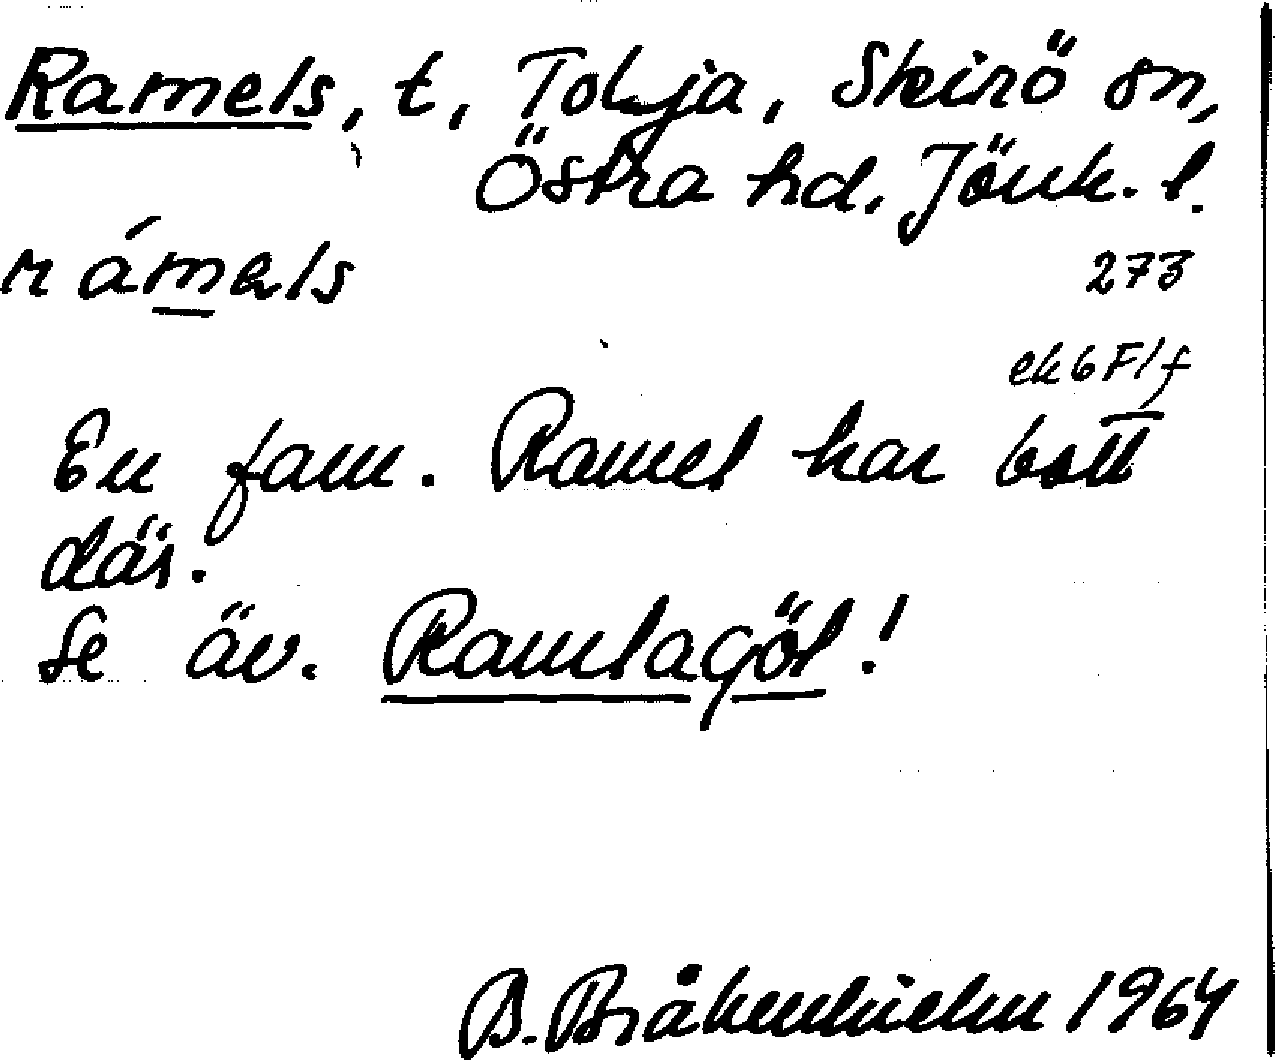 Ramels, t, Tolja, Skirö sn,
Östra hd. Jönk. l.
rámels
273
ek 6 F l f
En fam. Ramel har bott
där.
Se äv. Ramlagöl!
B. Bråkenhielm 1964